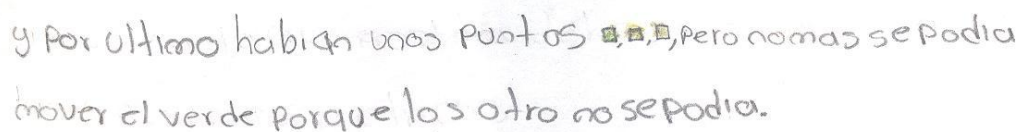 y por ultimo habian unos puntos , , , pero nomas se podia
mover el verde porque los otro no se podia.